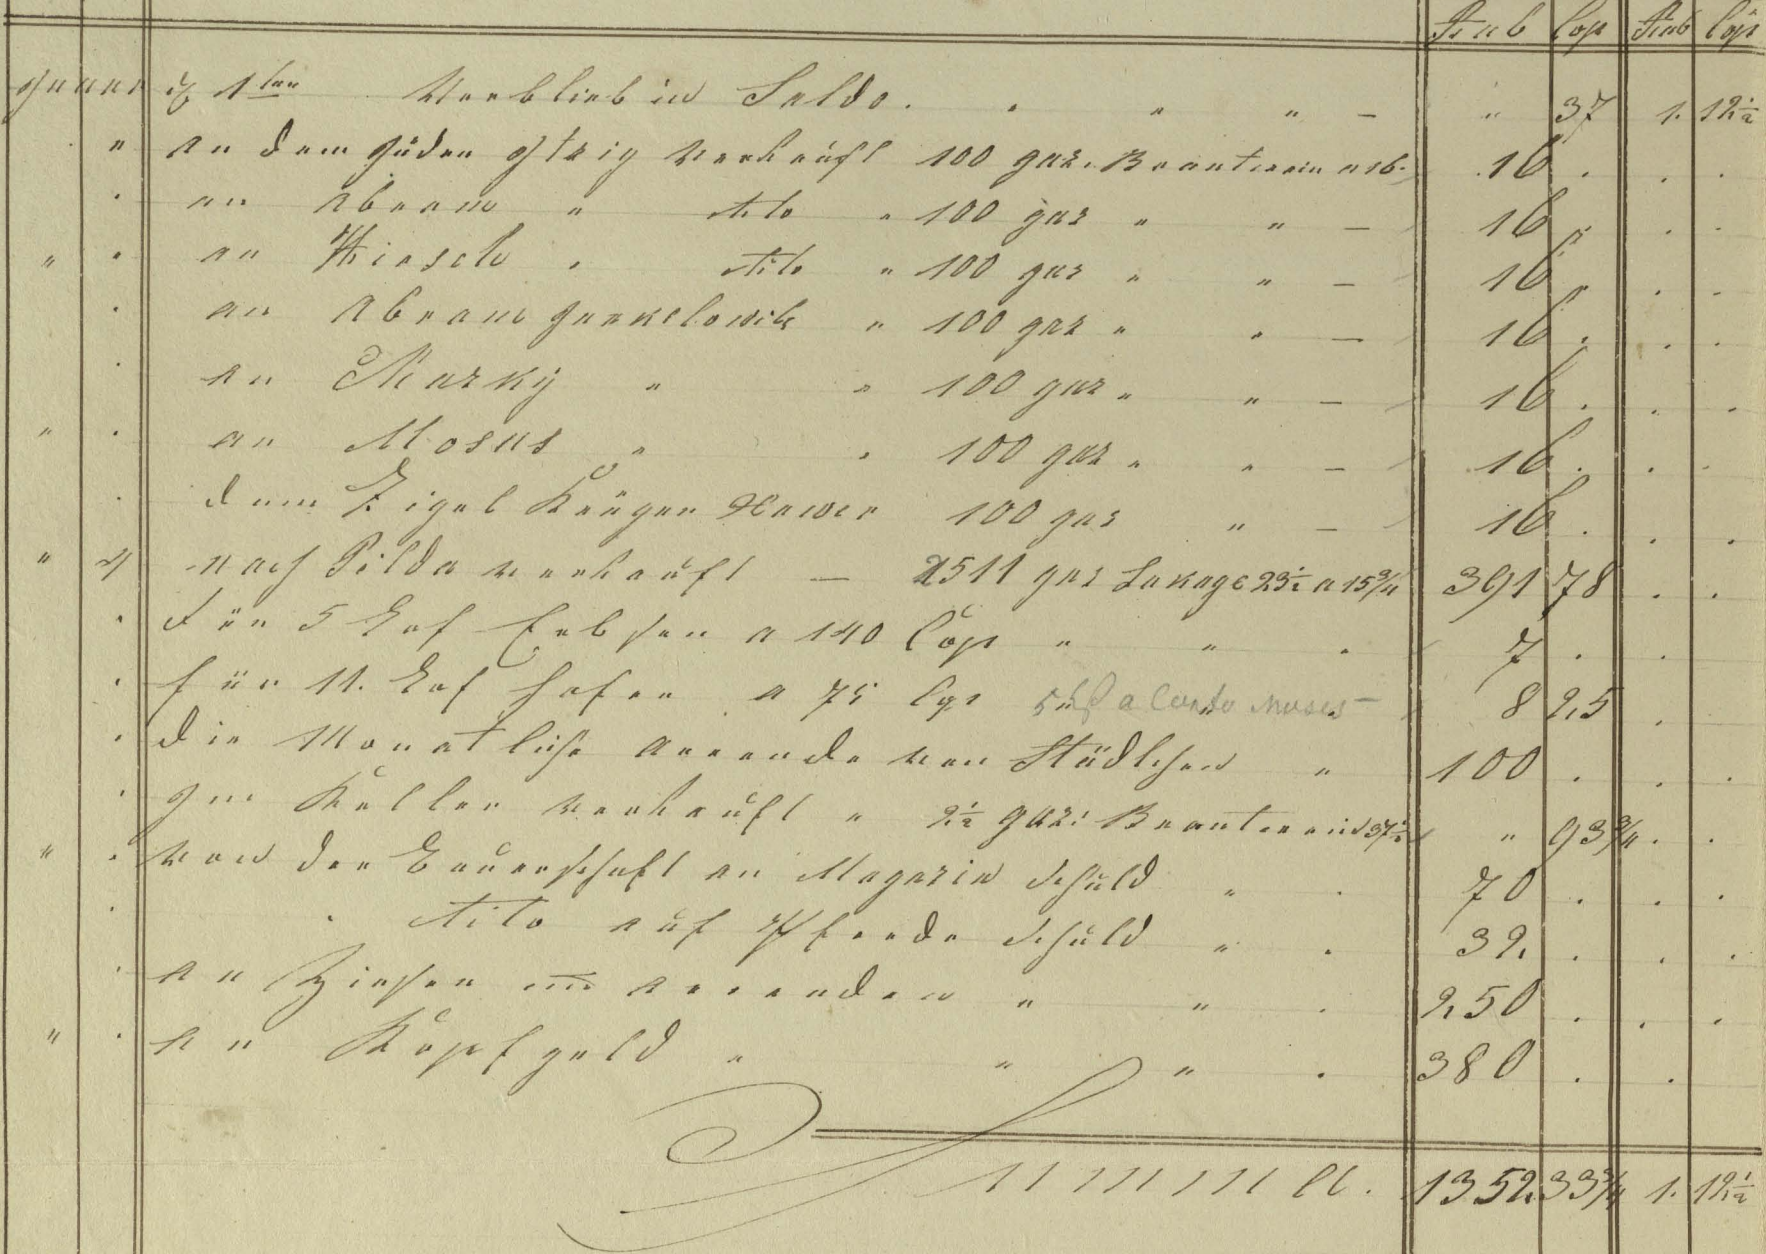 Rub Cop Rub Cop
Januar d 1ten Verblieb in Saldo . . " " — " 37 1. 12½
" an dem Juden Itzig verkauft 100 gar. Brantwein a 16. 16 . . .
an Abram " dito " 100 gar " " — 16 . . .
" an Hirsch " dito " 100 gar " " — 16 . . .
an Abram Jankelowitz " 100 gar " " — 16 . . .
an Marky " " 100 gar " " — 16 . . .
" an Moses " " 100 gar " " — 16 . . .
dem Zigel Krüger Xawer 100 gar " — 16 . . .
" 4 nach Pilda verkauft — 2511 gar Lakage 23½ a 15¾ 391 78 . .
Für 5 Lof Erbsen a 140 Cop " " . 7 . .
für 11. Lof Hafer a 75 Cop 5 Lof a Conto Moses — 8 25 .
die Monatliche Arende von Städtchen " 100 . . .
Im Keller verkauft " 2½ gar: Brantwein 37½ " 93¾ . .
" von der Bauerschaft an Magazin Schuld " . 70 . . .
dito auf Pferde Schuld " . 32 . . .
an Zinsen und Arenden " " . 250 . . .
" an Kopfgeld " " " . 380 . .
Summa. 1352 33¾ 1. 12½